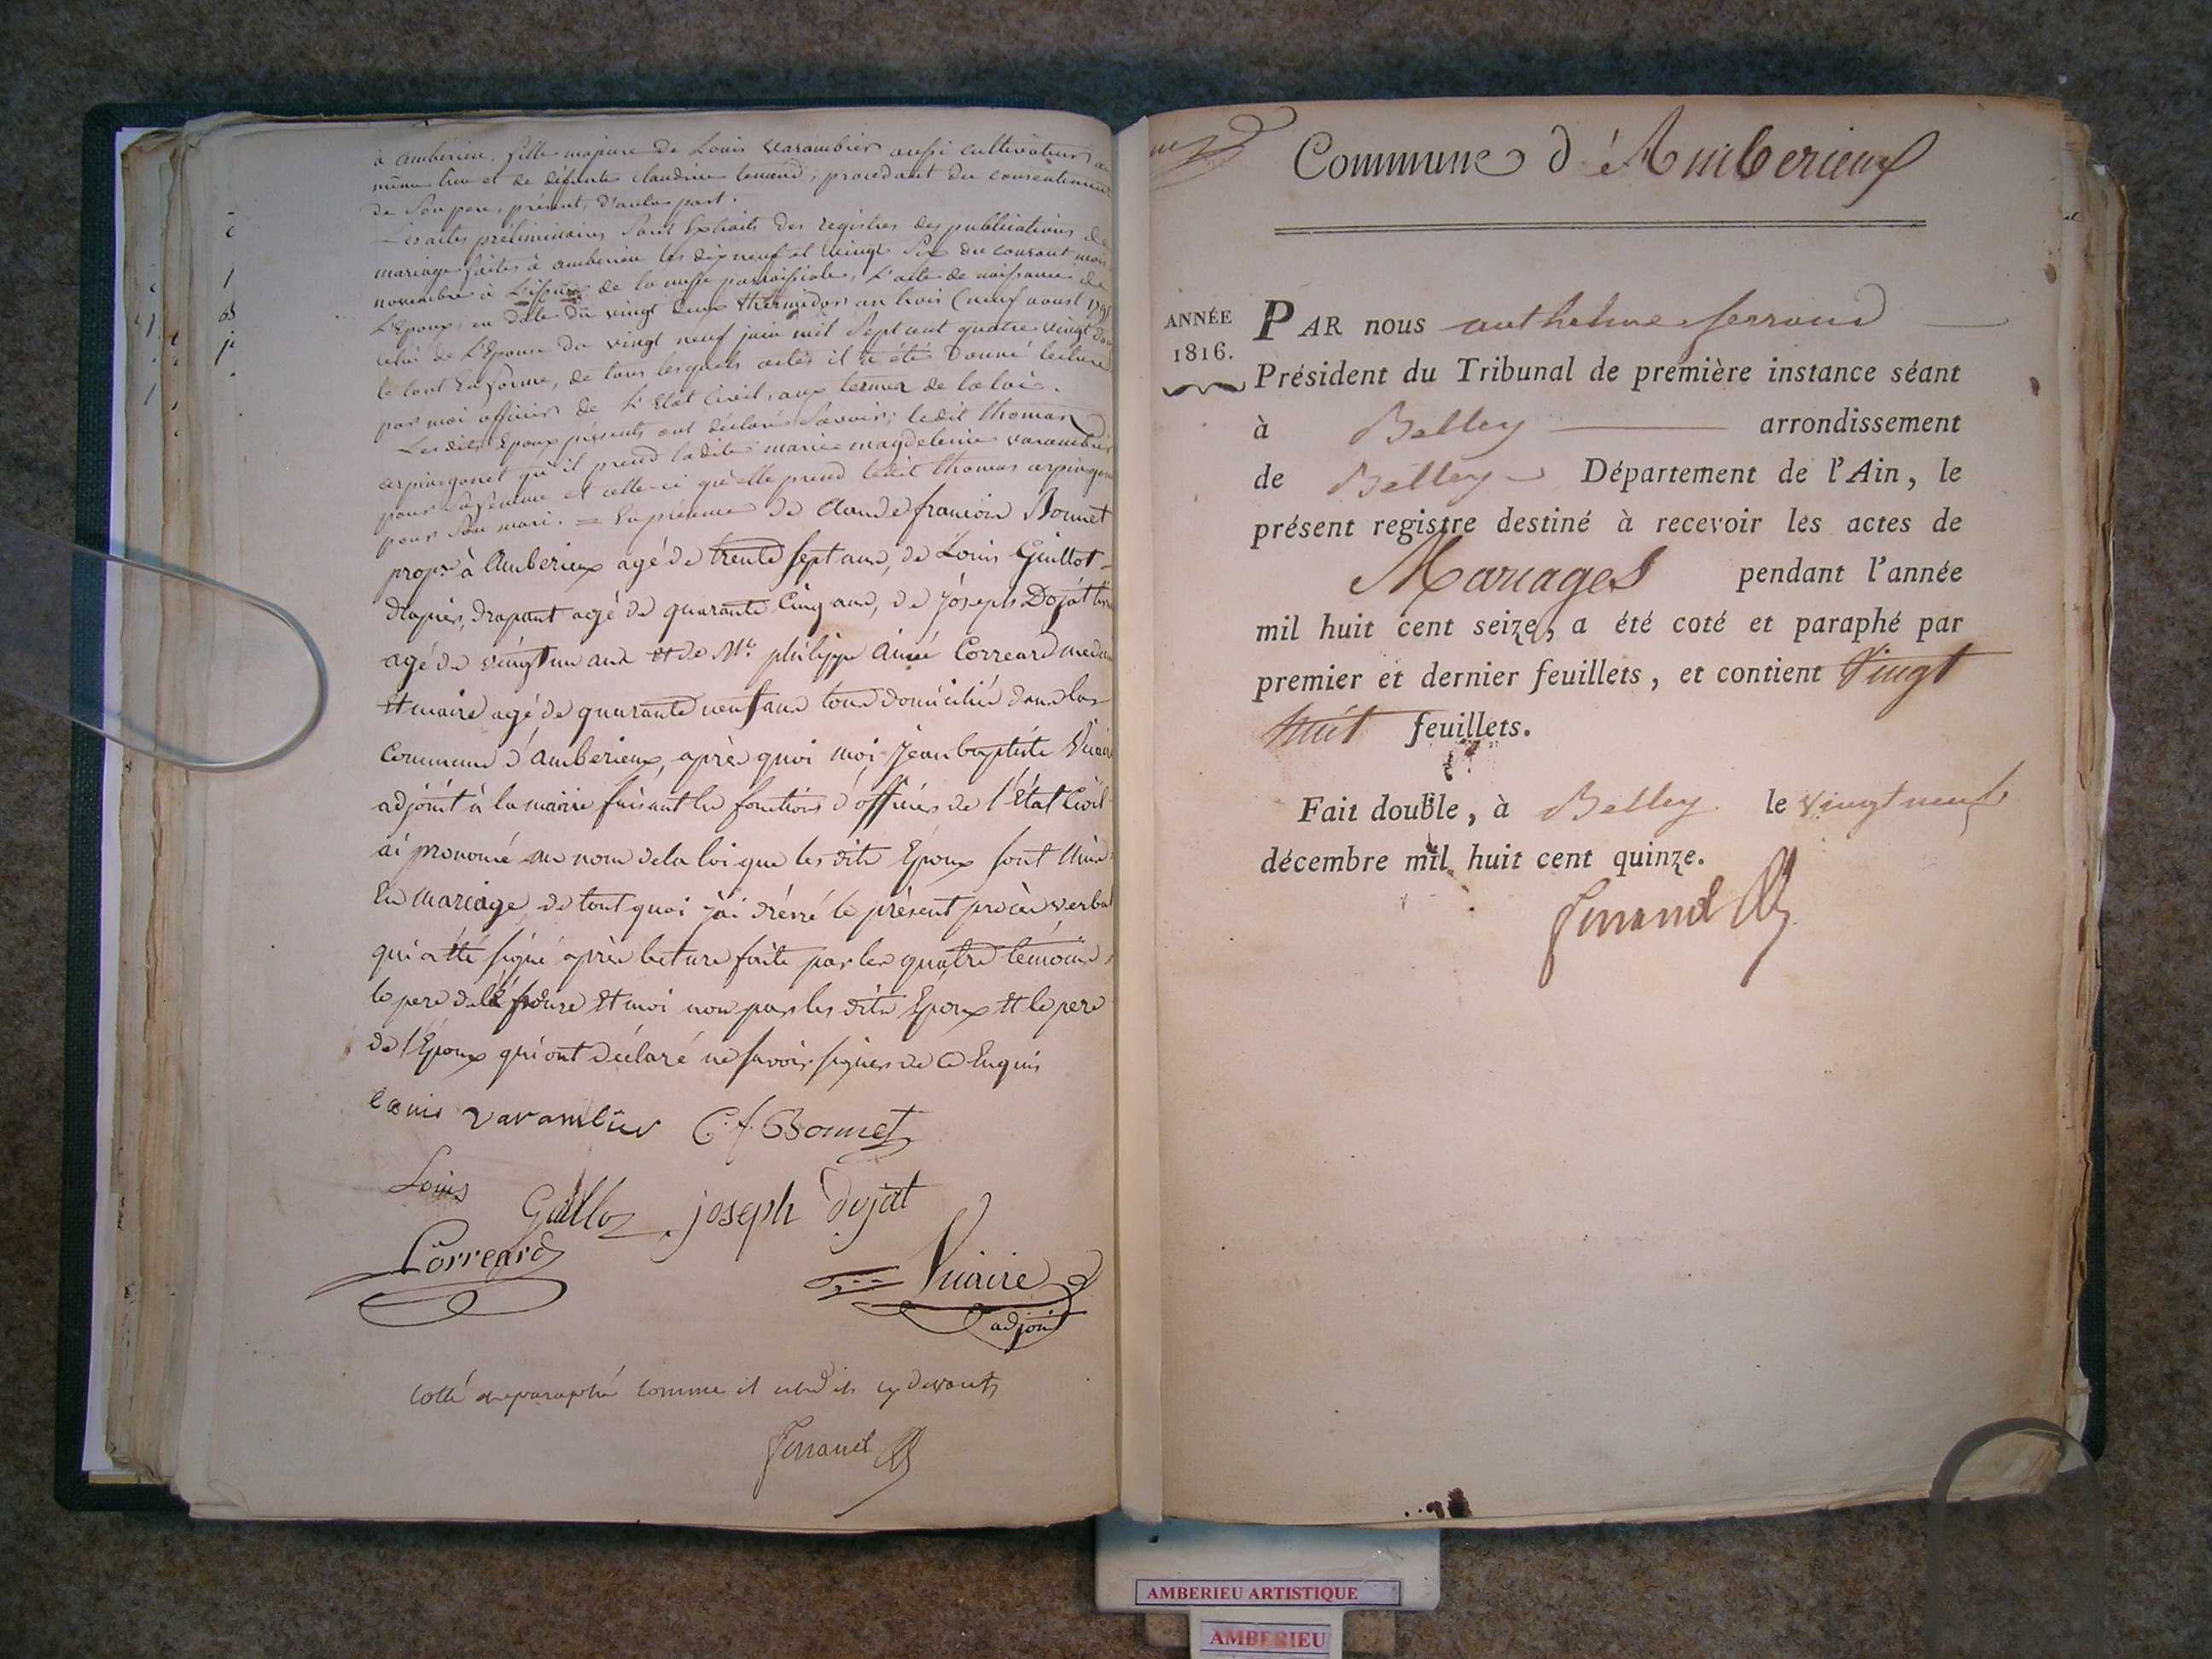 à amberieu, fille majeure de Louis Varambier aussi cultivateur au
même lieu et de défunte Claudine, procedant du consentement
de Son pere, présent, d'autre part.
Les actes préliminaires Sont Extraits des registres des publications de
mariage faites à amberieu les dix neuf et vingt Six du courant mois
novembre à L'issue de la messe paroissiale, L'acte de naissance de
L'Epoux, en date du vingt deux thermidor an trois (neuf aoust 1795
celui de L'Epouse du vingt neuf juin mil Sept cent quatre vingt
le tout En forme, de tous lesquels actes il a été donné lecture
par moi officier de L'Etat Civil, aux termes de la loi.
Les dits Epoux présents ont déclaré Savoir; ledit thomas
arpingonet qu'il prend ladite marie magdeleine varambier
pour Sa femme et celle-ci qu'elle prend ledit thomas
pour Son mari. = En présence de Claude françois Bonnet
propre à Amberieux agé de trente sept ans, de Louis Guillot
drapier, drapant agé de quarante Cinq ans, de Joseph Dojat
agé de vingt un ans et de Mr philippe Aimé Correard
Et maire agé de quarante neuf ans tous domiciliés dans la
Commune d'Amberieux, après quoi moi, Jean baptiste Vuaire
adjoint à la mairie faisant les fonctions d'officier de l'État Civil
ai prononcé au nom de la loi que les dits Époux sont Unis
En Mariage, de tout quoi j'ai dréssé le présent procès verbal
qui a été signé après lecture faite par les quatre témoins,
le pere de l'épouse Et moi non par les dits Epoux Et le pere
de l'Époux qui ont déclaré ne savoir signer de ce Enquis
Louis varambier C. f. Bonnet
Louis Guillot joseph dojat
Correard Vuaire
adjoint
cotté et paraphé comme il est dit cy devant
ferrand
Commune d'Amberieux
ANNÉE
1816.
PAR nous anthelme ferrand
Président du Tribunal de première instance séant
à Belley arrondissement
de Belley Département de l'Ain, le
présent registre destiné à recevoir les actes de
Mariages pendant l'année
mil huit cent seize, a été coté et paraphé par
premier et dernier feuillets, et contient Vingt
huit feuillets.
Fait double, à Belley le vingt neuf
décembre mil huit cent quinze.
ferrand
AMBERIEU ARTISTIQUE
AMBERIEU